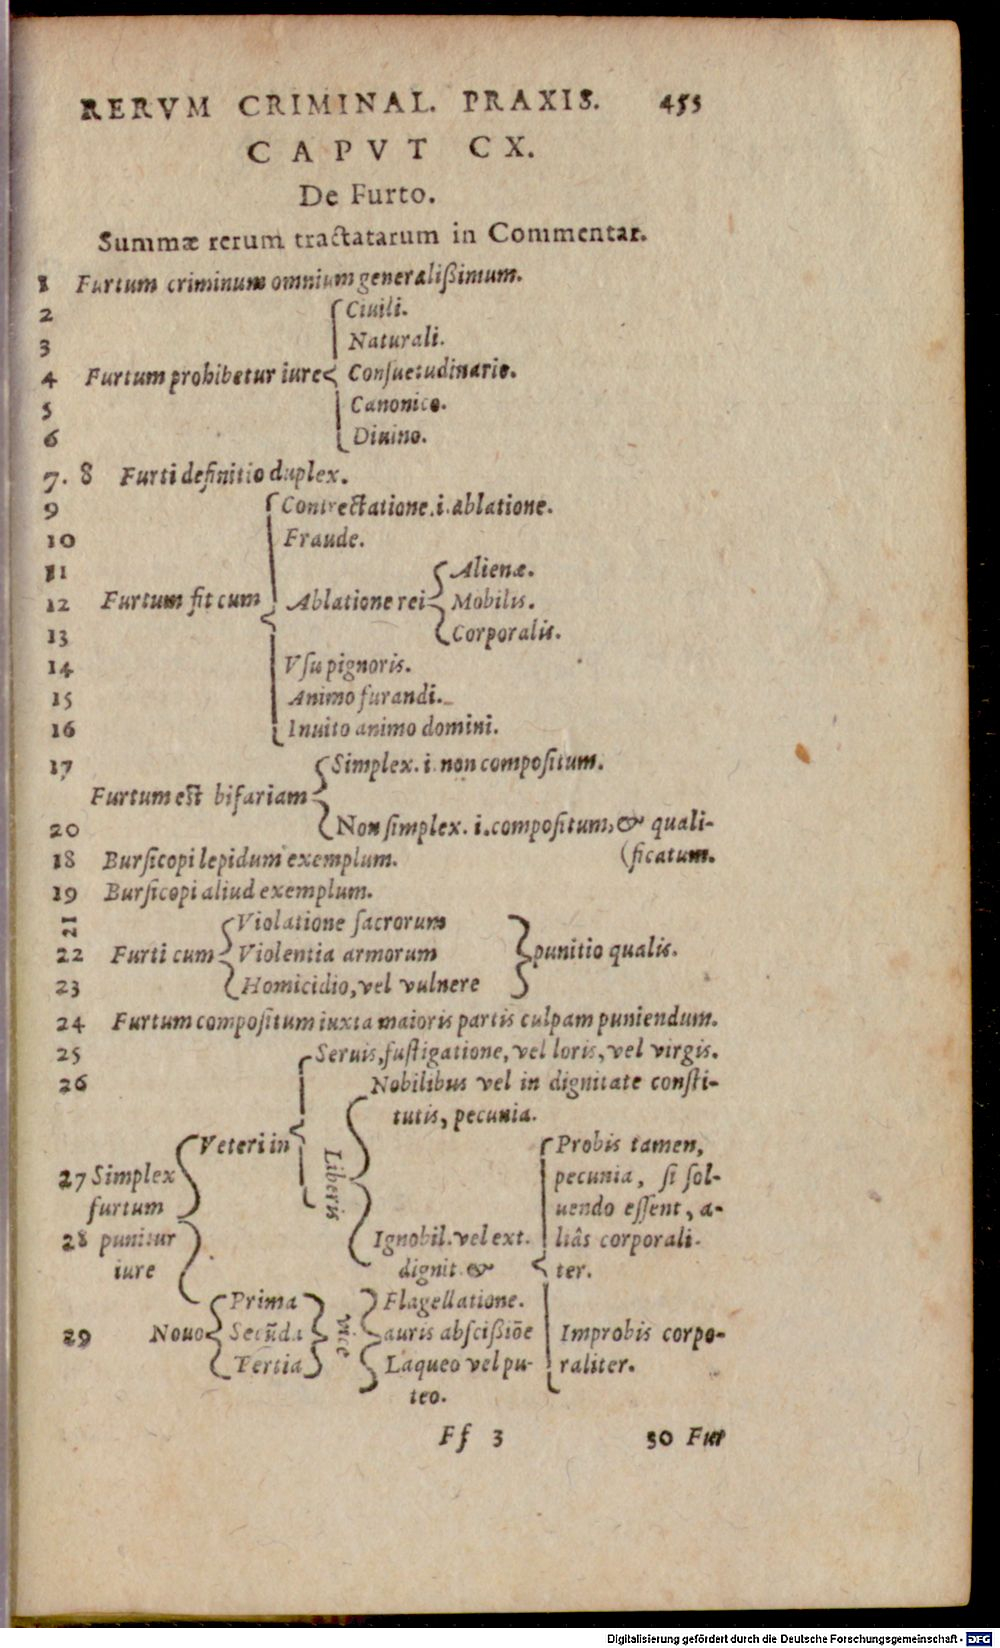 RERVM CRIMINAL. PRAXIS. 455
CAPVT CX.
De Furto.
Summæ rerum tractatarum in Commentar.
1 Furtum criminum omnium generalißimum.
2 Ciuili.
3 Naturali.
4 Furtum prohibetur iure Consuetudinario.
5 Canonico.
6 Diuino.
7. 8 Furti definitio duplex.
9 Contrectatione.i.ablatione.
10 Fraude.
11 Alienæ.
12 Furtum fit cum Ablatione rei Mobilis.
13 Corporalis.
14 Vsu pignoris.
15 Animo furandi.
16 Inuito animo domini.
17 Simplex.i.non compositum.
Furtum est bifariam
20 Non simplex.i.compositum, & quali-
18 Bursicopi lepidum exemplum. (ficatum.
19 Bursicopi aliud exemplum.
21 Violatione sacrorum
22 Furti cum Violentia armorum punitio qualis.
23 Homicidio, vel vulnere
24 Furtum compositum iuxta maioris partis culpam puniendum.
25 Seruis, fustigatione, vel loris, vel virgis.
26 Nobilibus vel in dignitate consti-
tutis, pecunia.
Veteri in Probis tamen,
27 Simplex Liberis pecunia, si sol-
furtum uendo essent, a-
28 punitur Ignobil. vel ext. liâs corporali-
iure dignit. & ter.
Prima Flagellatione.
29 Nouo Secūda vice auris abscißiōe Improbis corpo-
Tertia Laqueo vel pu- raliter.
teo.
Ff 3 30 Fur
Digitalisierung gefördert durch die Deutsche Forschungsgemeinschaft - DFG